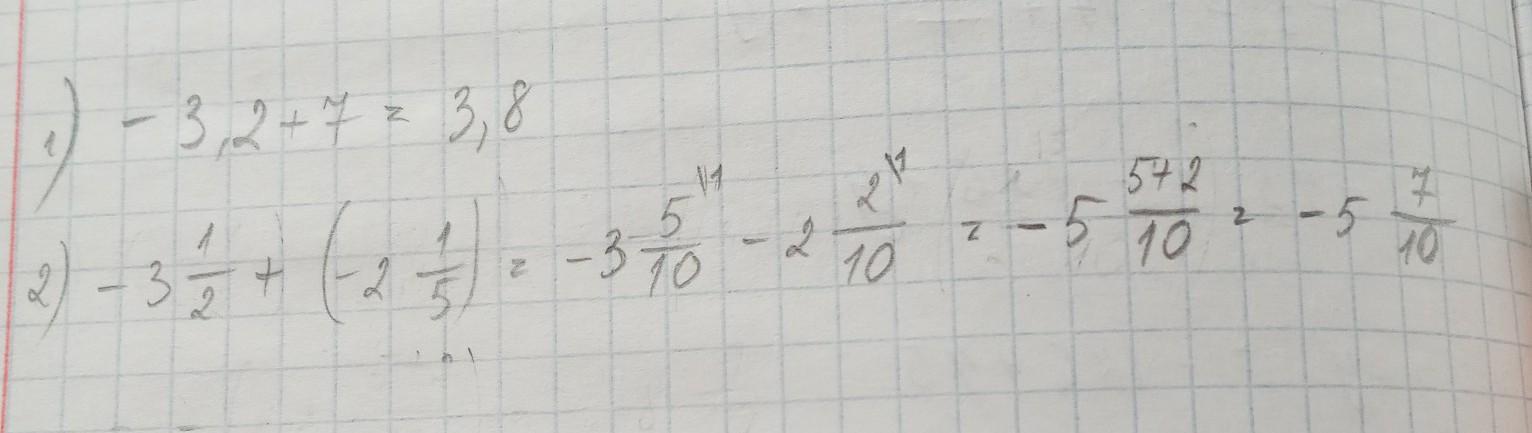 1) - 3,2 + 7 = 3,8
2) - 3 1/2 + (- 2 1/5) = - 3 5\1/10 - 2 2\1/10 = - 5 5+2/10 = - 5 7/10